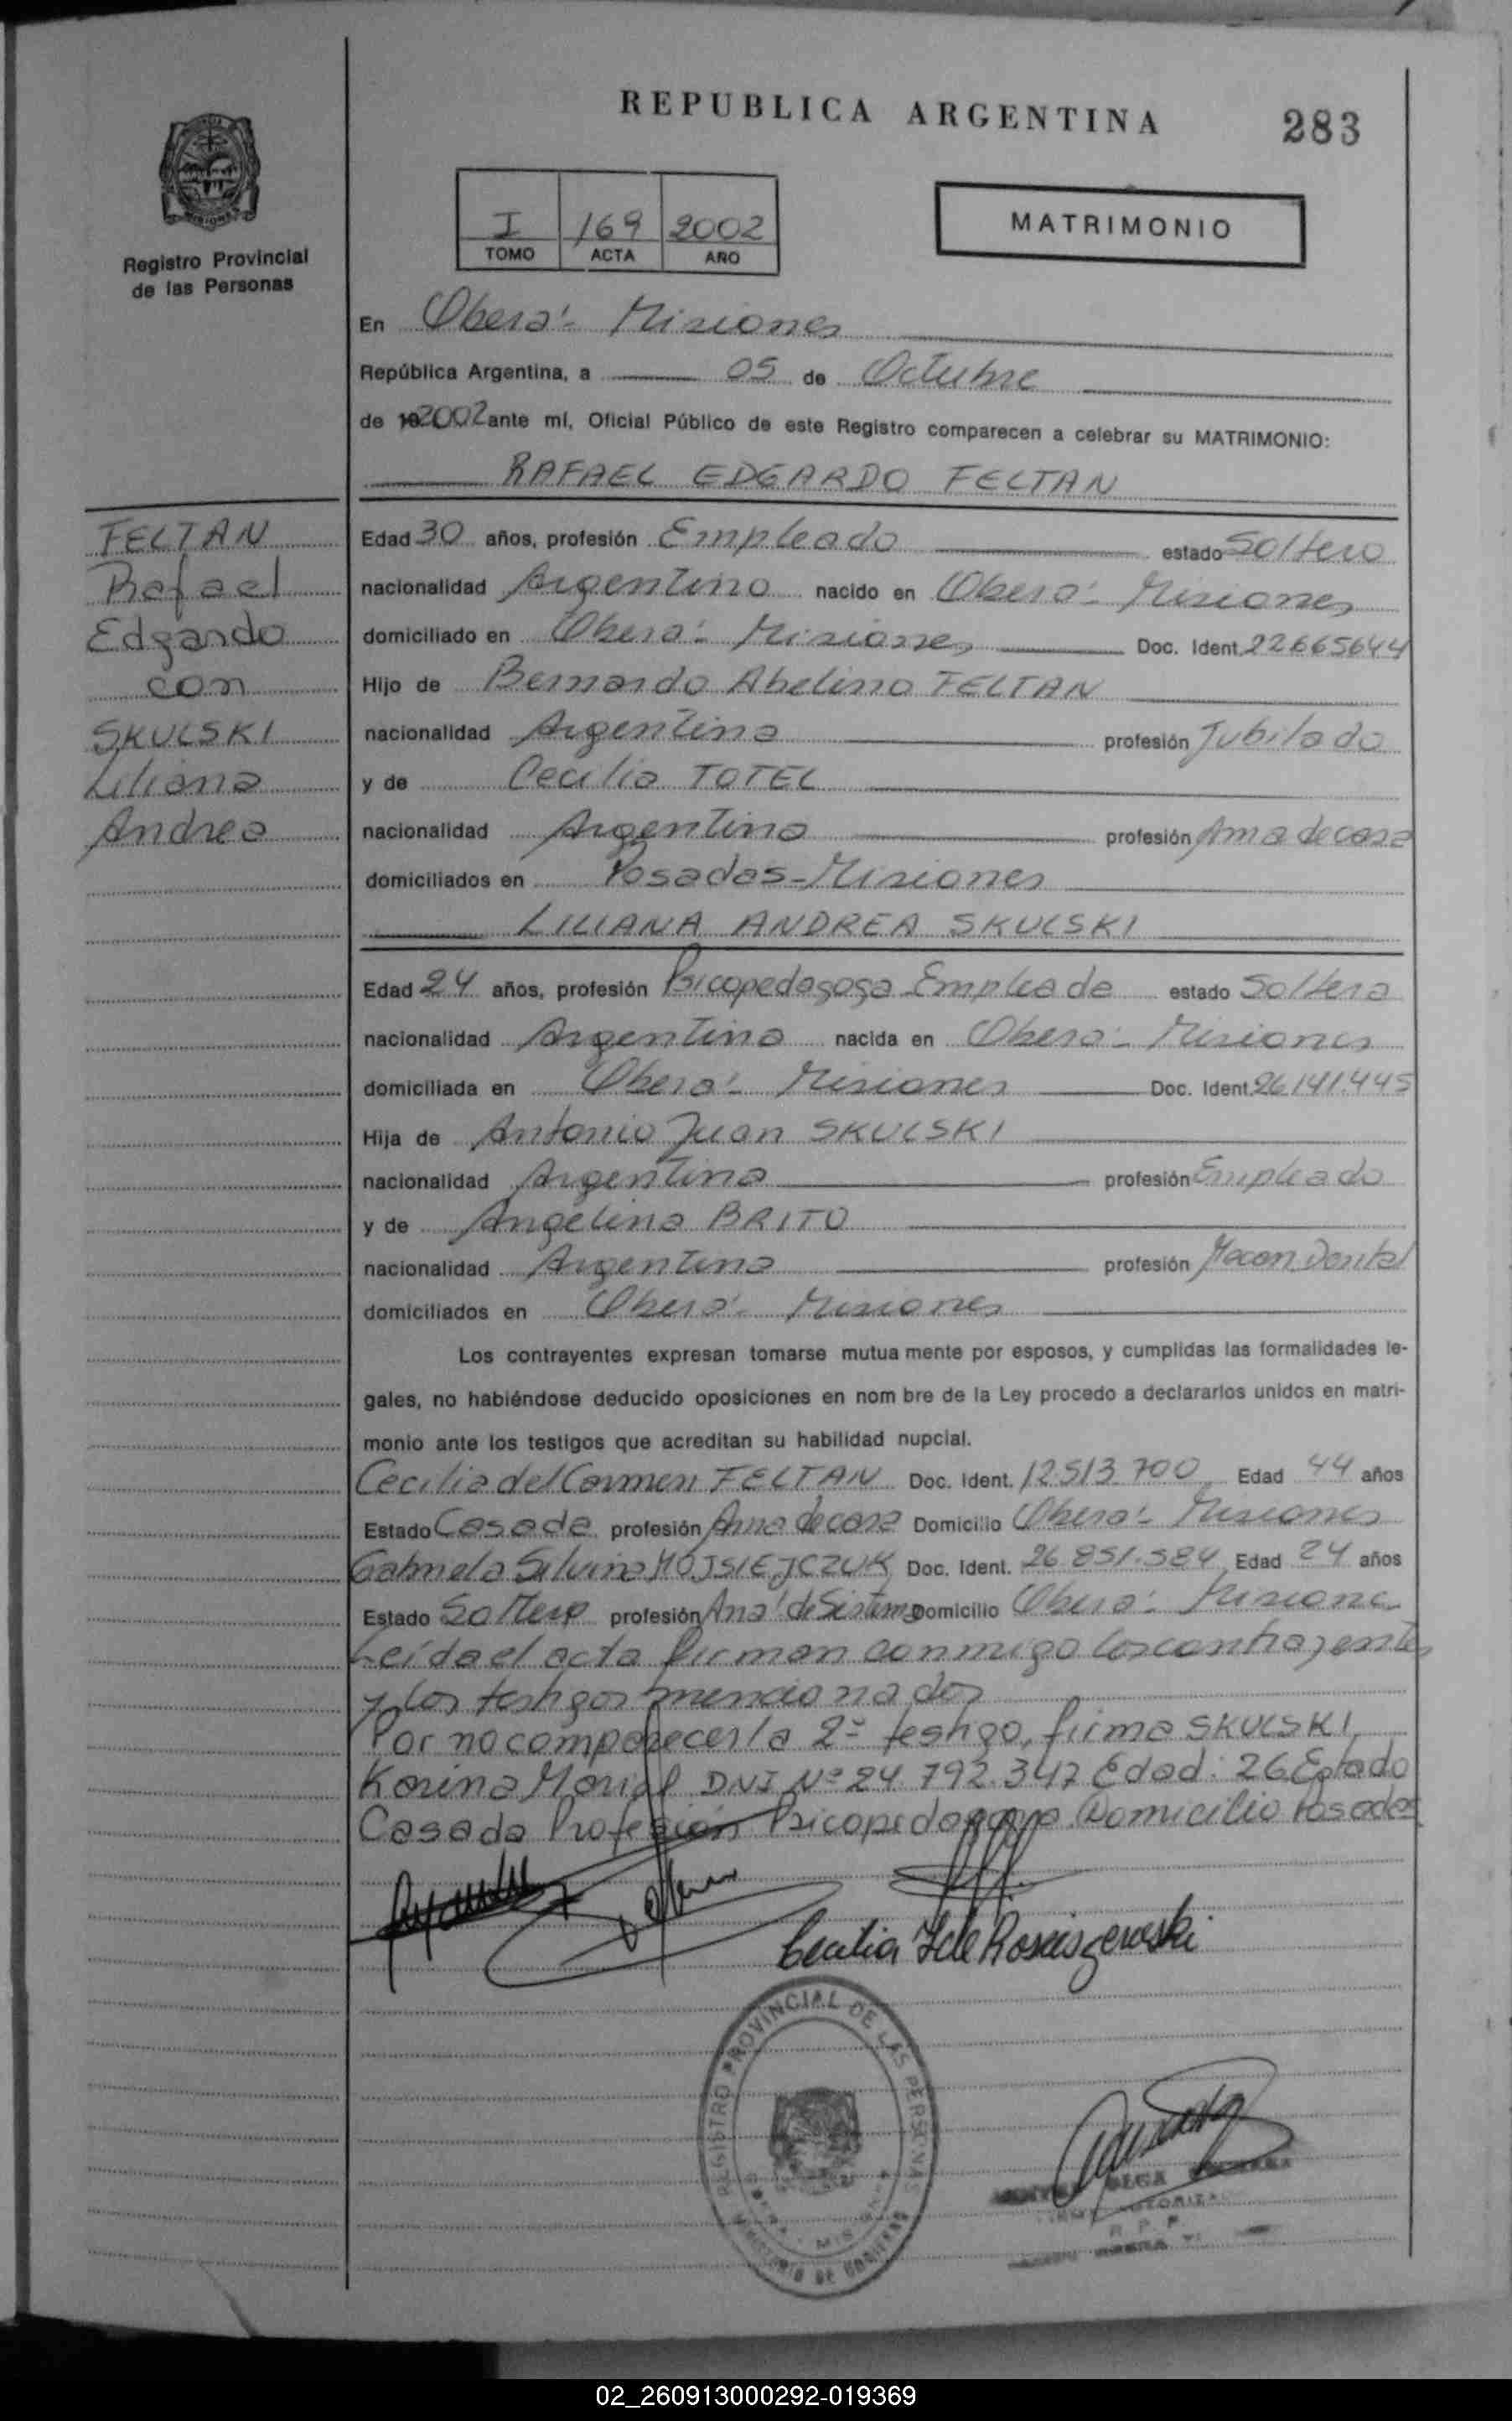 REPUBLICA ARGENTINA
283
I 169 2002
TOMO ACTA AÑO
MATRIMONIO
Registro Provincial
de las Personas
En Oberá - Misiones
República Argentina, a 05 de Octubre
de 192002 ante mí, Oficial Público de este Registro comparecen a celebrar su MATRIMONIO:
RAFAEL EDGARDO FELTAN
FELTAN
Rafael
Edgardo
con
SKULSKI
Liliana
Andrea
Edad 30 años, profesión Empleado estado Soltero
nacionalidad Argentino nacido en Oberá - Misiones
domiciliado en Oberá - Misiones Doc. Ident. 22665644
Hijo de Bernardo Abelino FELTAN
nacionalidad Argentina profesión Jubilado
y de Cecilia TOTEL
nacionalidad Argentina profesión Ama de casa
domiciliados en Posadas - Misiones
LILIANA ANDREA SKULSKI
Edad 24 años, profesión Psicopedagoga Empleada estado Soltera
nacionalidad Argentina nacida en Oberá - Misiones
domiciliada en Oberá - Misiones Doc. Ident. 26.141.445
Hija de Antonio Juan SKULSKI
nacionalidad Argentina profesión Empleado
y de Angelina BRITO
nacionalidad Argentina profesión Mecan. Dental
domiciliados en Oberá - Misiones
Los contrayentes expresan tomarse mutua mente por esposos, y cumplidas las formalidades le-
gales, no habiéndose deducido oposiciones en nom bre de la Ley procedo a declararlos unidos en matri-
monio ante los testigos que acreditan su habilidad nupcial.
Cecilia del Carmen FELTAN Doc. Ident. 12.513.700 Edad 44 años
Estado Casada profesión Ama de casa Domicilio Oberá - Misiones
Gabriela Silvina MOJSIEJCZUK Doc. Ident. 26.851.584 Edad 24 años
Estado Soltera profesión Ana. de Sistema Domicilio Oberá - Misiones
Leída el acta firman conmigo los contrayentes
y los testigos mencionados
Por no comparecer la 2º testigo, firma SKULSKI
Karina Mariel DNI Nº 24.792.347 Edad: 26 Estado
Casada Profesión Psicopedagoga Domicilio Posadas
Cecilia F de Rosciszewski
REGISTRO PROVINCIAL DE LAS PERSONAS
MINISTERIO DE GOBIERNO
OLGA
R. P. P.
02_260913000292-019369